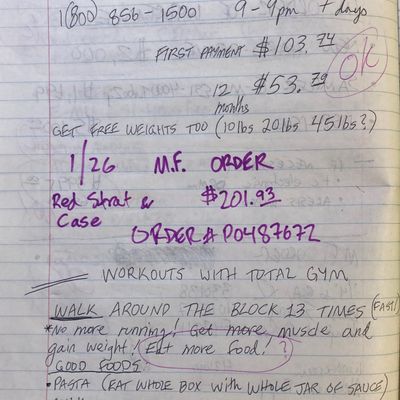 1(800) 856-1500 9-9pm 7 days
FIRST PAYMENT $103.74
OK
12 months $53.79
GET FREE WEIGHTS TOO (10lbs 20lbs 45lbs?)
1/26 M.F. ORDER
Red Strat & $201.93
Case
ORDER # P0487672
WORKOUTS WITH TOTAL GYM
WALK AROUND THE BLOCK 13 TIMES (FAST!)
*No more running! Get more muscle and
gain weight! Eat more food! ?
GOOD FOODS
• PASTA (EAT WHOLE BOX with WHOLE JAR OF SAUCE)